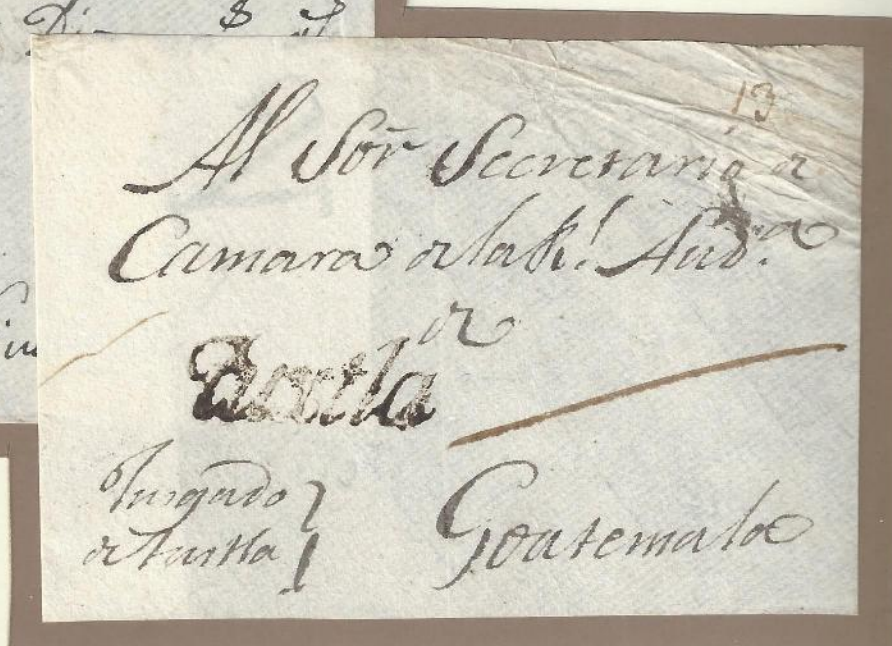 13
Al Sor Secretario de
Camara de la Rl. Auda.
de
Tuxtla
Jusgado
de Tuxtla
Goatemala